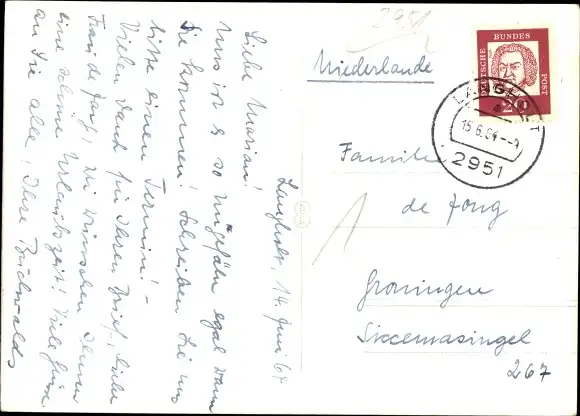 Langholt, 14. Juni 64
Liebe Marian!
Uns ist es so ungefähr egal wann
Sie kommen! Schreiben Sie uns
bitte einen Termin! -
Vielen Dank für Ihren Brief, liebe
Frau de Jong! Wir wünschen Ihnen
eine schöne Urlaubszeit! Viele Grüsse
an Sie alle, Ihre
2951
Niederlande
DEUTSCHE BUNDESPOST
20
LANGHOLT
15.6.64
2951
Familie
de Jong
Groningen
Siccemasingel
267
1